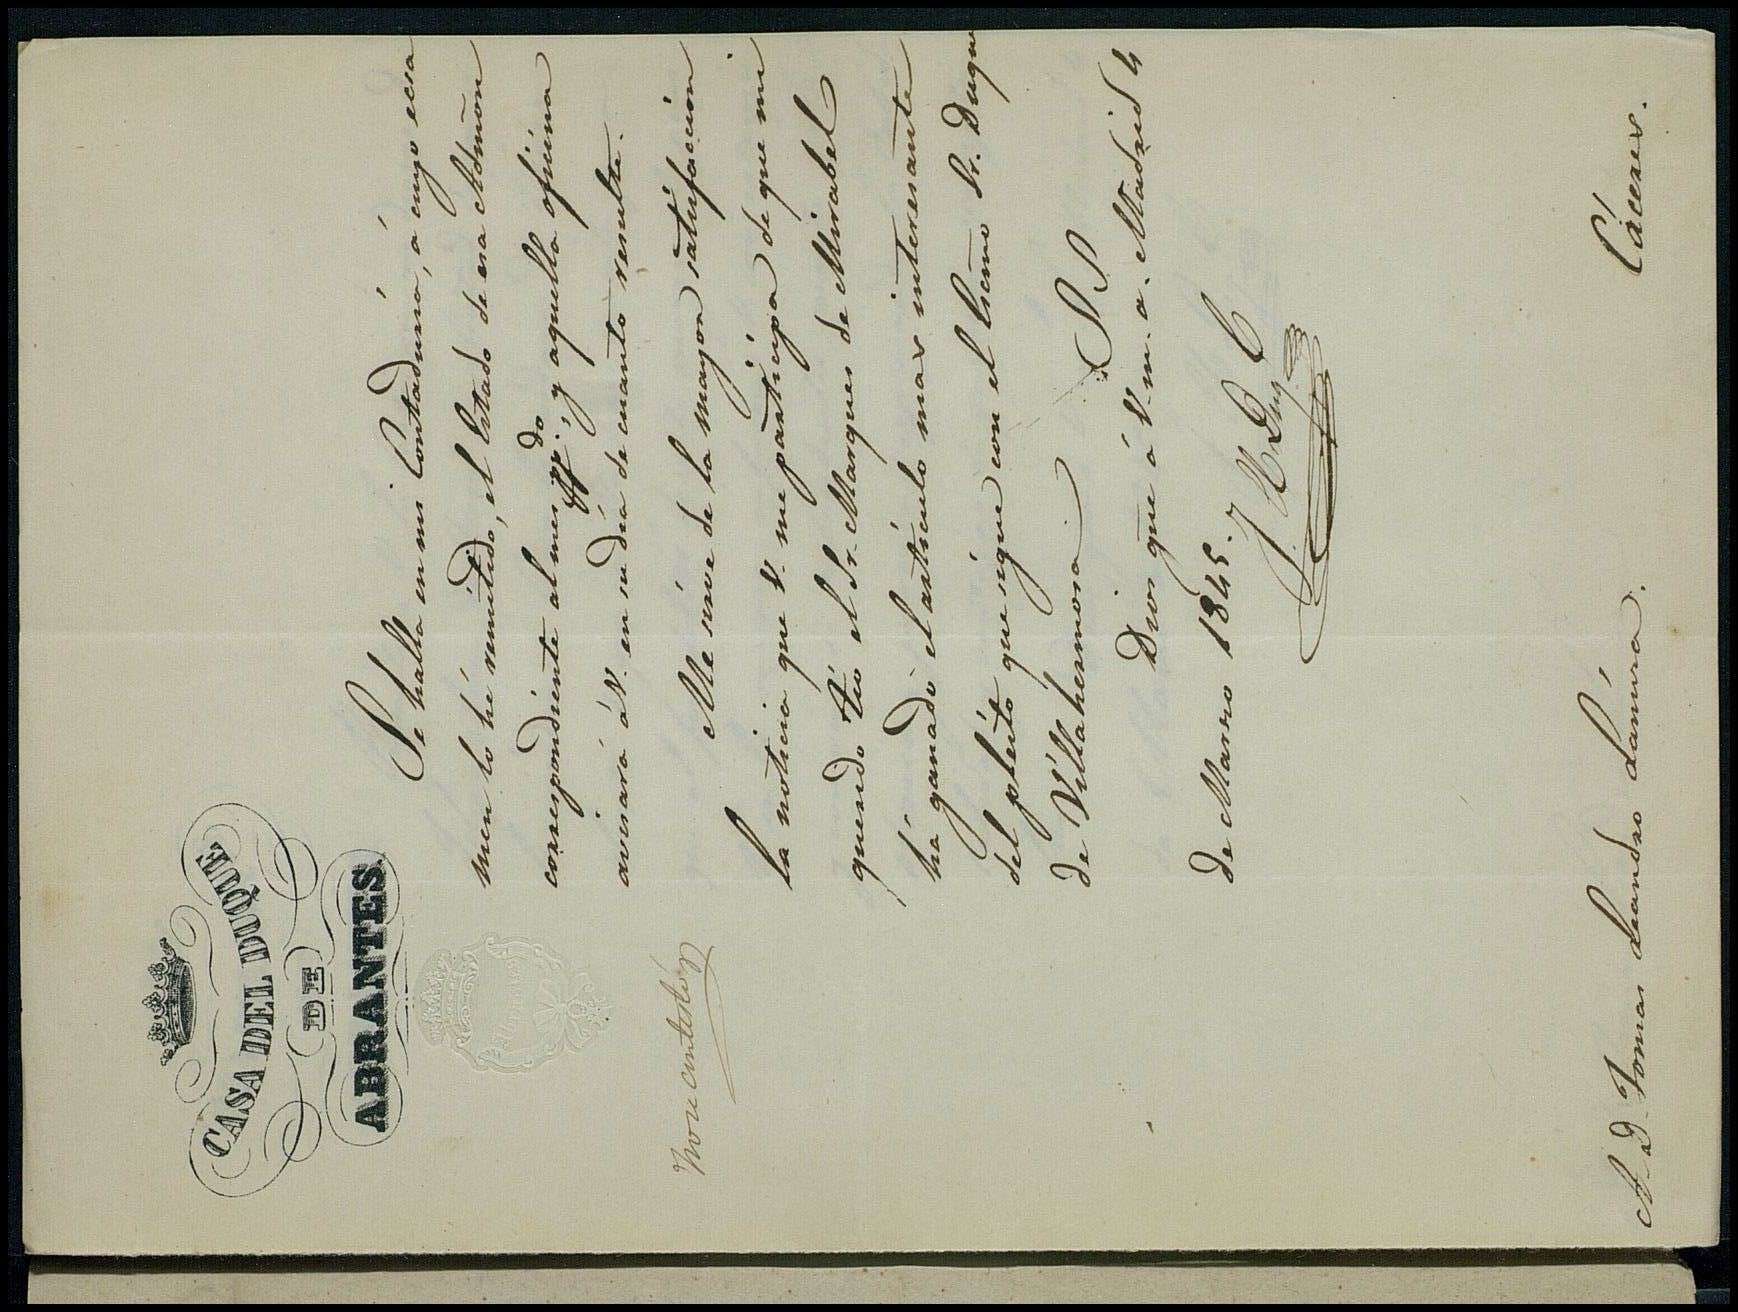 CASA DEL DUQUE
DE
ABRANTES
Se halla en mi Contaduria, a cuyo ecsa
men lo hé remitido, el Estado de esa Admōn
corresponditente al mes pp.do; y aquella oficina
avisará á V. en su dia de cuanto resulte.
Me sirve de la mayor satisfaccion
la noticia que V. me participa de que mi
querido tio el Sr. Marques de Mirabel
há ganado el articulo mas interesante
del pleito que sigue con el Escmo Sr. Duque
de Villahermosa.
Dios gue á V. m. a. Madrid 4
de Marzo 1845.
No se contestó
A D. Tomas Leandro Lamira. Cáceres.